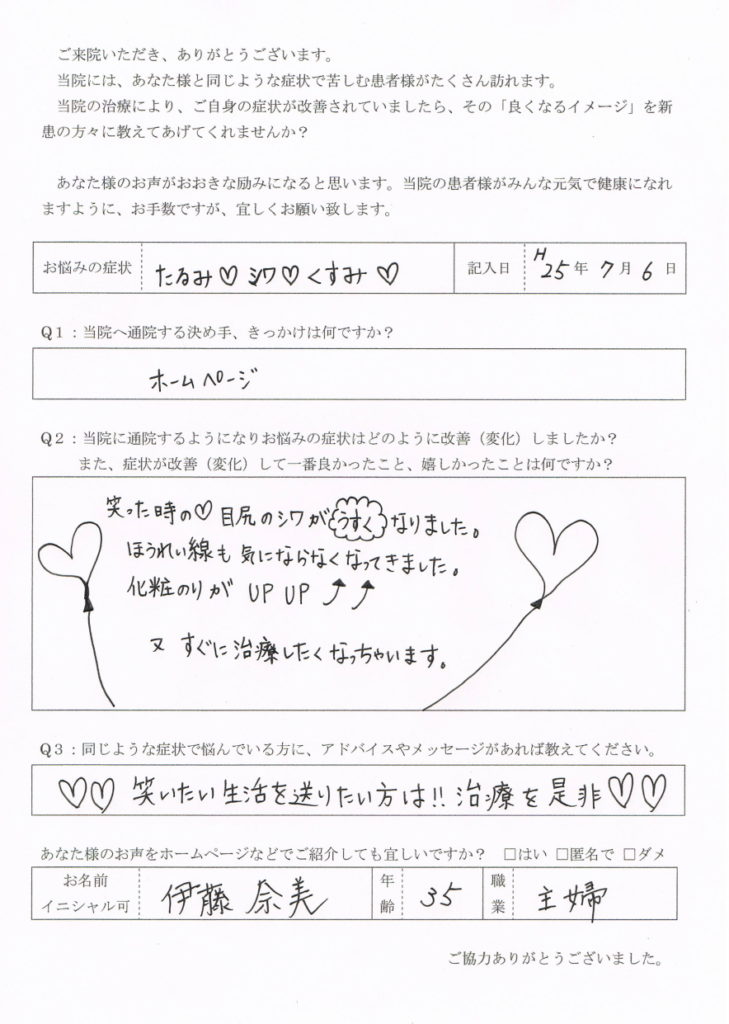 ご来院いただき、ありがとうございます。
当院には、あなた様と同じような症状で苦しむ患者様がたくさん訪れます。
当院の治療により、ご自身の症状が改善されていましたら、その「良くなるイメージ」を新
患の方々に教えてあげてくれませんか？
あなた様のお声がおおきな励みになると思います。当院の患者様がみんな元気で健康になれ
ますように、お手数ですが、宜しくお願い致します。
お悩みの症状 たるみ♡シワ♡くすみ♡ 記入日 H25年7月6日
Q1：当院へ通院する決め手、きっかけは何ですか？
ホームページ
Q2：当院に通院するようになりお悩みの症状はどのように改善（変化）しましたか？
また、症状が改善（変化）して一番良かったこと、嬉しかったことは何ですか？
笑った時の♡目尻のシワがうすくなりました。
ほうれい線も気にならなくなってきました。
化粧のりが UP UP ⤴⤴
又すぐに治療したくなっちゃいます。
Q3：同じような症状で悩んでいる方に、アドバイスやメッセージがあれば教えてください。
♡♡ 笑いたい生活を送りたい方は!!治療を是非♡♡
あなた様のお声をホームページなどでご紹介しても宜しいですか？ □はい □匿名で □ダメ
お名前 イニシャル可 伊藤奈美 年齢 35 職業 主婦
ご協力ありがとうございました。